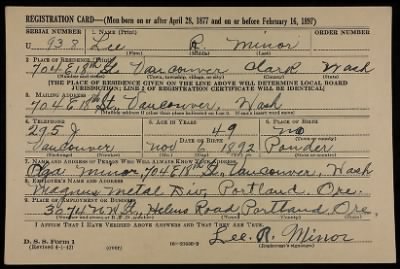 REGISTRATION CARD—(Men born on or after April 28, 1877 and on or before February 16, 1897)
SERIAL NUMBER 1. NAME (Print) ORDER NUMBER
U 938 Lee R. Minor
(First) (Middle) (Last)
2. PLACE OF RESIDENCE (Print)
704 E 18th St. Vancouver Clark Wash
(Number and street) (Town, township, village, or city) (County) (State)
[THE PLACE OF RESIDENCE GIVEN ON THE LINE ABOVE WILL DETERMINE LOCAL BOARD
JURISDICTION; LINE 2 OF REGISTRATION CERTIFICATE WILL BE IDENTICAL]
3. MAILING ADDRESS
704 E 18th St., Vancouver, Wash
[Mailing address if other than place indicated on line 2. If same insert word same]
4. TELEPHONE 5. AGE IN YEARS 6. PLACE OF BIRTH
295 J 49 Mo
DATE OF BIRTH (Town or county)
Vancouver Nov 6 1892 Ponder
(Exchange) (Number) (Mo.) (Day) (Yr.) (State or country)
7. NAME AND ADDRESS OF PERSON WHO WILL ALWAYS KNOW YOUR ADDRESS
Minor, 704 E 18th St., Vancouver, Wash
8. EMPLOYER'S NAME AND ADDRESS
Magnus Metal Div, Portland. Ore.
9. PLACE OF EMPLOYMENT OR BUSINESS
N.W. St. Helens Road Portland, Ore.
(Number and street or R. F. D. number) (Town) (County) (State)
I AFFIRM THAT I HAVE VERIFIED ABOVE ANSWERS AND THAT THEY ARE TRUE.
Lee. R. Minor
D. S. S. Form 1
(Revised 4-1-42) (over) (Registrant's signature)